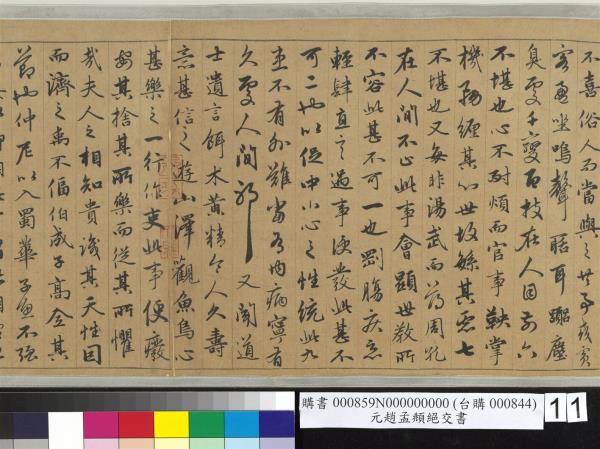 不喜俗人而當與之共事或賓
客盈坐鳴聲聒耳囂塵
臭處千變百技在人目前六
不堪也心不耐煩而官事鞅掌
機務纏其心世故繁其慮七
不堪也又每非湯武而薄周孔
在人間不止此事會顯世教所
不容此甚不可一也剛腸疾惡
輕肆直言遇事便發此甚不
可二也以促中小心之性統此九
患不有外難當有內病寧可
久處人間邪又聞道
士遺言餌朮黃精令人久壽
意甚信之遊山澤觀魚鳥心
甚樂之一行作吏此事便廢
安能捨其所樂而從其所懼
哉夫人之相知貴識其天性因
而濟之禹不偪伯成子高全其
節也仲尼以入蜀華子魚不強
購書 000859N000000000 (台購 000844)
元趙孟頫絕交書
11